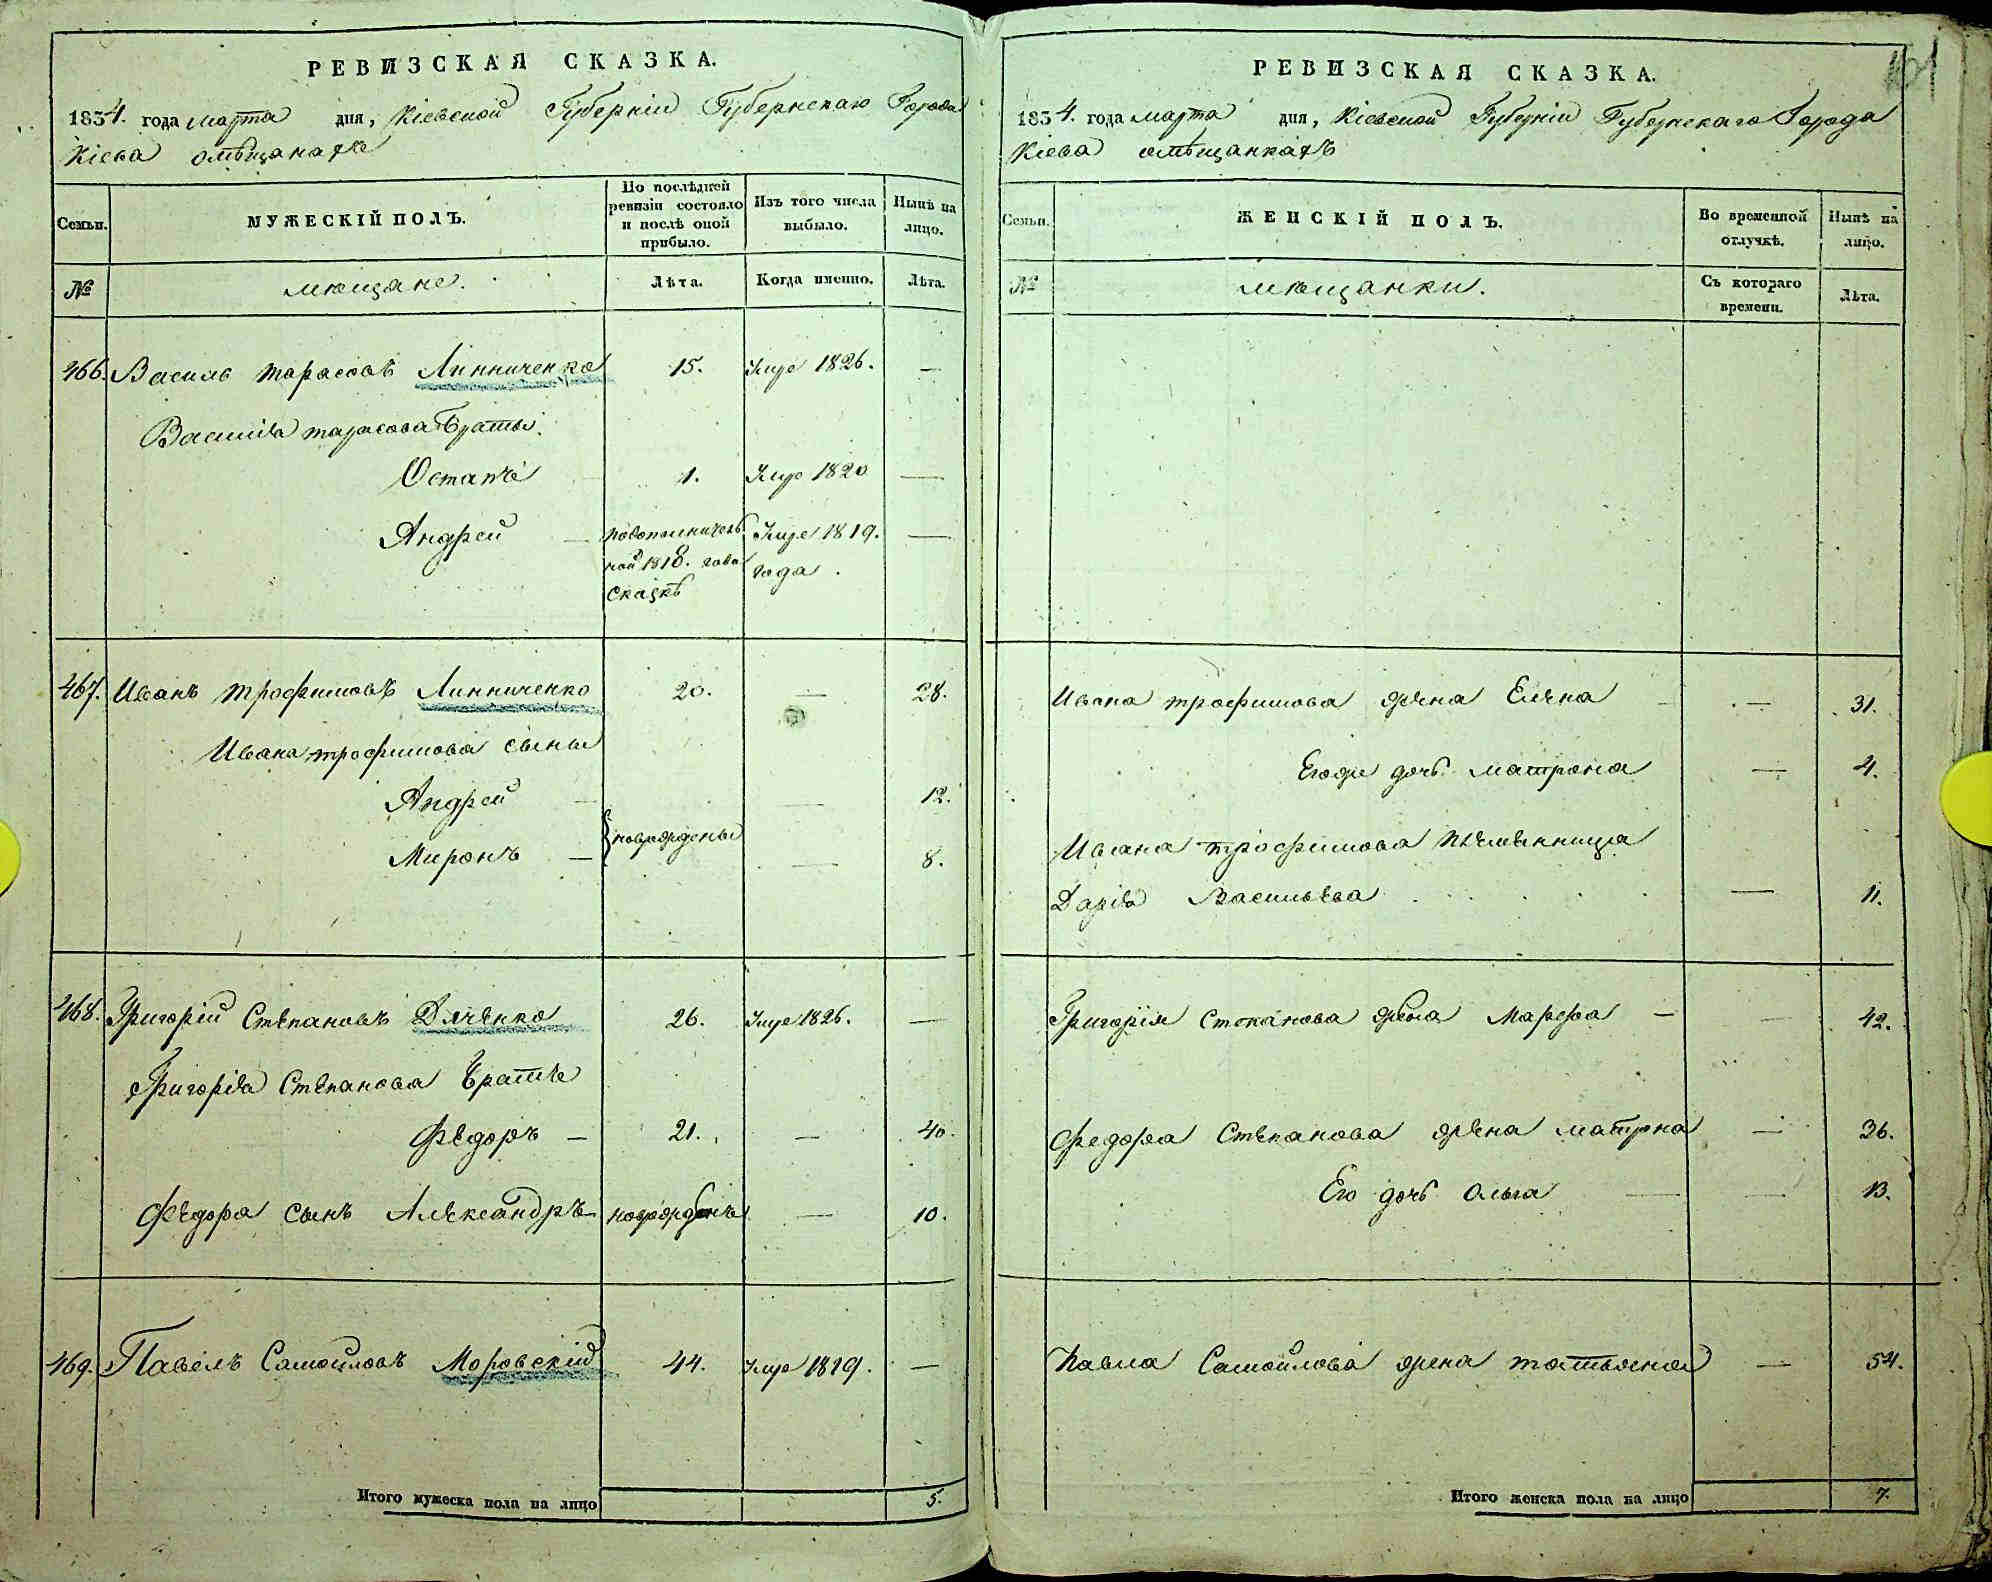 РЕВИЗСКАЯ СКАЗКА.
1834. года марта дня, Кіевской Губерніи Губернскаго Города
Кіева омѣщанахъ
Семьи.
МУЖЕСКІЙ ПОЛЪ.
По послѣдней ревизіи состояло и послѣ оной прибыло.
Изъ того числа выбыло.
Нынѣ на лицо.
№
мѣщане.
Лѣта.
Когда именно.
Лѣта.
466. Василь Тарасовъ Линниченко 15. Умре 1826. —
Василія тарасова Братья.
Остапъ 1. Умре 1820 —
Андрей — пополнитель Умре 1819. —
ной 1818. года года.
сказкѣ
467. Иванъ трофимовъ Линниченко 20. — 28.
Ивана трофимова сыны
Андрей — — 12.
новрождены
Миронъ — — 8.
468. Григорій Степановъ Дяченко 26. Умре 1826. —
Григорія Степанова братъ
Федоръ — 21. — 40.
Федора сынъ Александръ — новорожденъ — 10.
469. Павелъ Самойловъ Моровскій 44. Умре 1819. —
Итого мужеска пола на лицо 5.
РЕВИЗСКАЯ СКАЗКА.
1834. года марта дня, Кіевской Губерніи Губернскаго Города
Кіева омѣщанкахъ
Семьи.
ЖЕНСКІЙ ПОЛЪ.
Во временной отлучкѣ.
Нынѣ на лицо.
№
мѣщанки.
Съ котораго времени.
Лѣта.
Ивана трофимова жена Елена — — 31.
Егоже дочь матрона — 4.
Ивана трофимова племянница
Дарія Васильева — 11.
Григорія Степанова жена Марфа — — 42.
Федора Степанова жена матрна — 36.
Его дочь Ольга — — 13.
Павла Самойлова жена татьяна — 54.
Итого женска пола на лицо 7.